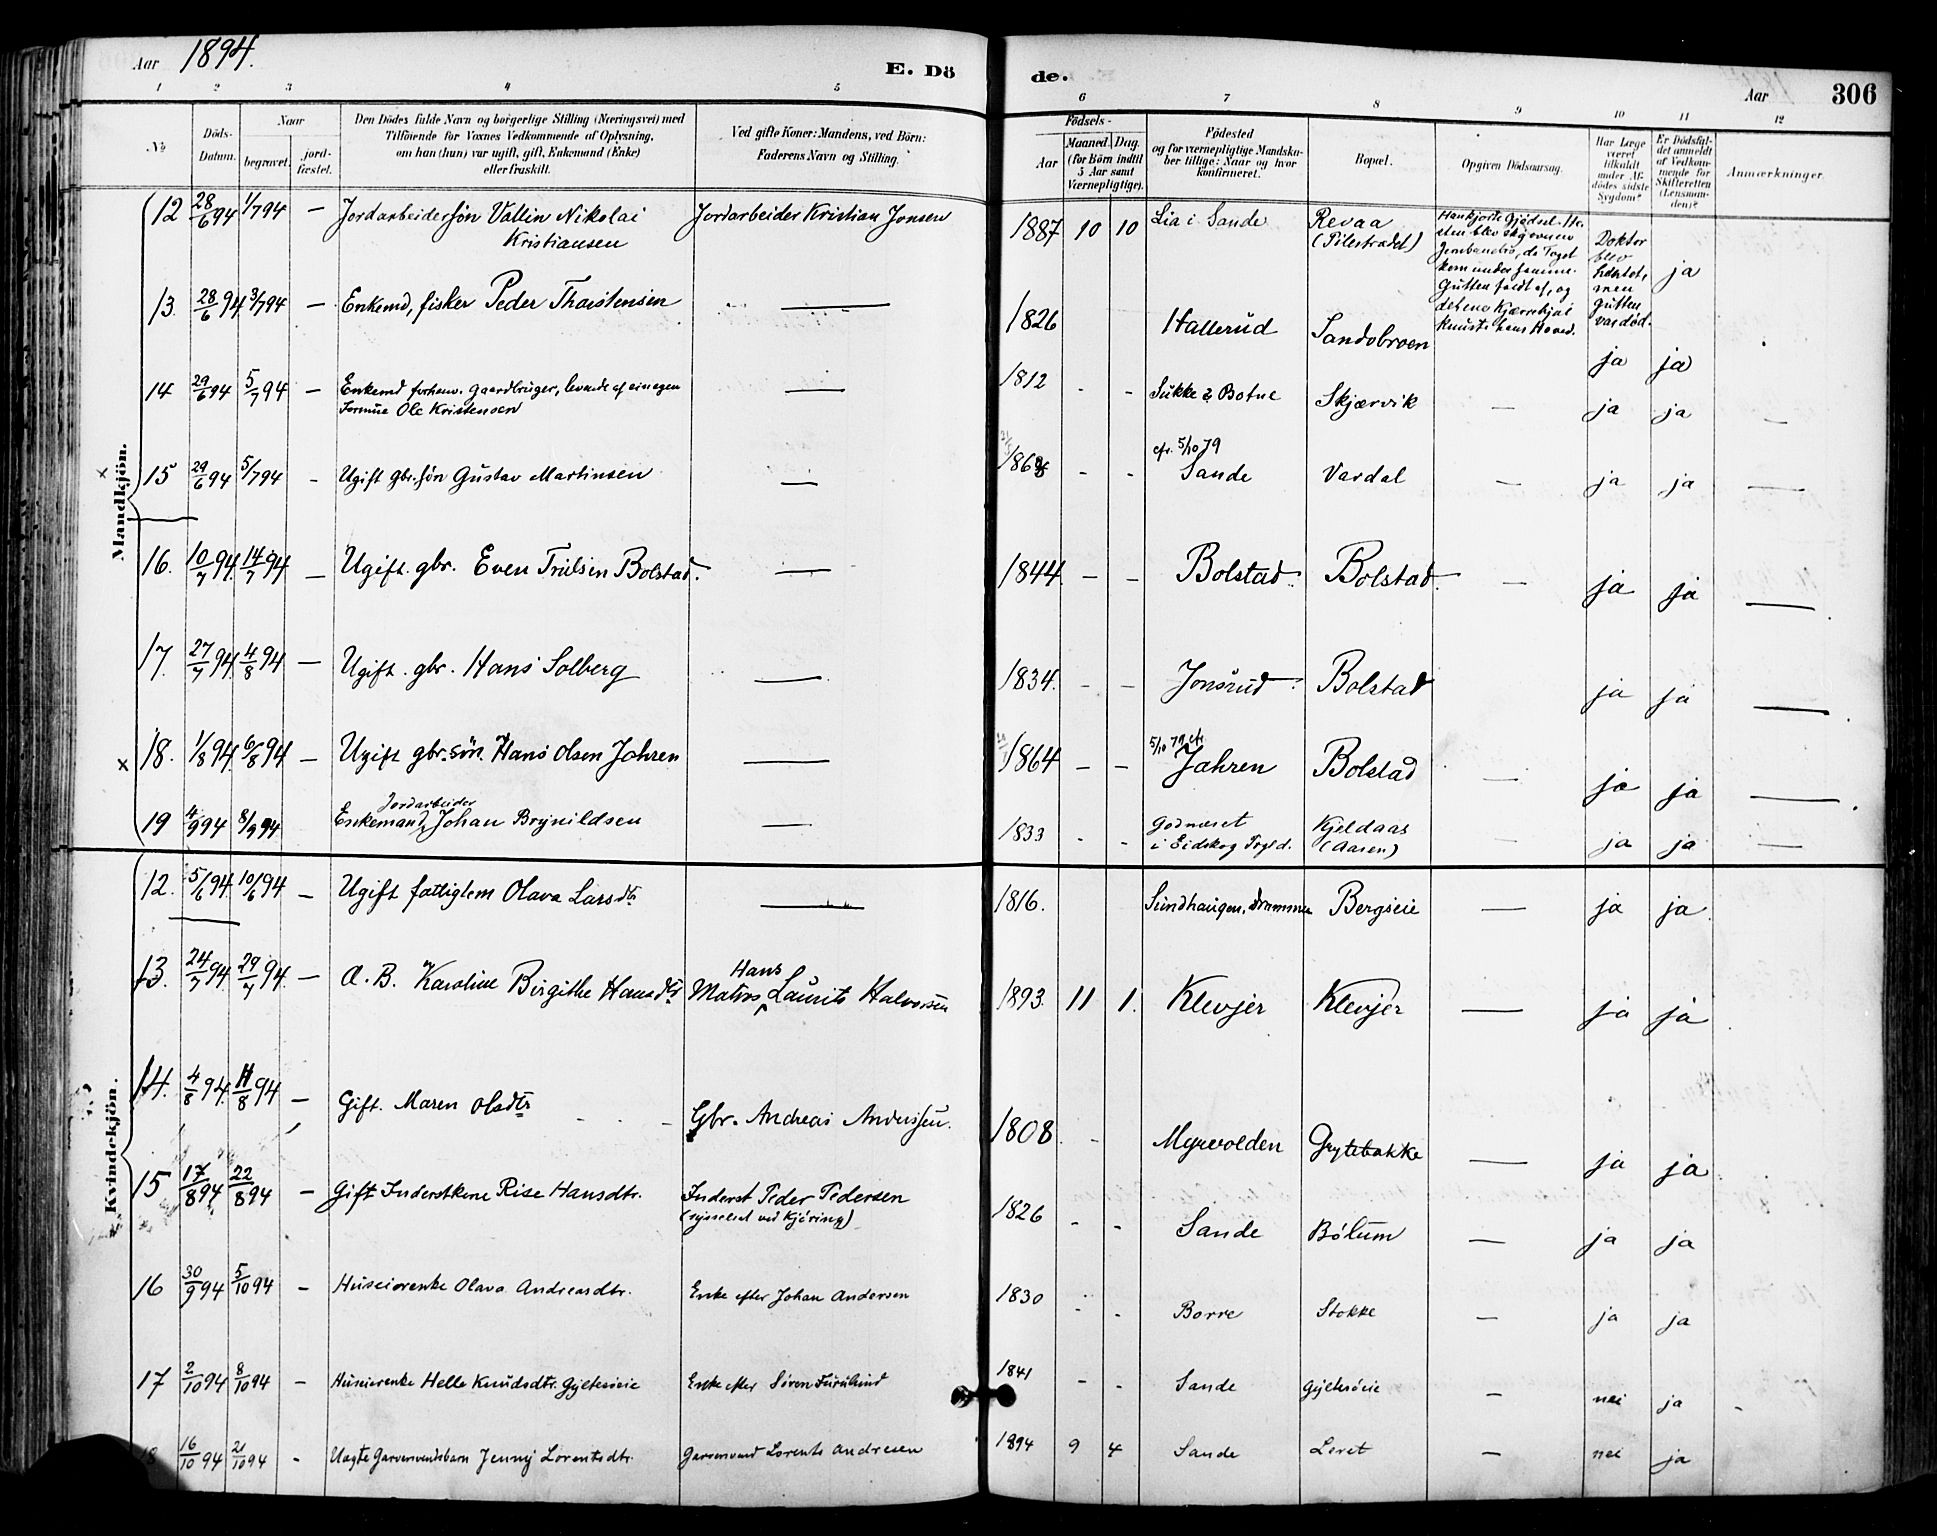 Aar 1894.
E. Dö
de.
Aar
306
1 2 3 4 5
6 7 8 9 10 11 12
No
Döds-
Datum.
Naar
begravet.
jord-
fæstet.
Den Dödes fulde Navn og borgerlige Stilling (Næringsvei) med
Tilföiende for Voxnes Vedkommende af Oplysning,
om han (hun) var ugift, gift, Enkemand (Enke)
eller fraskilt.
Ved gifte Koner: Mandens, ved Börn:
Faderens Navn og Stilling.
Födsels-
Aar
Maaned. Dag.
(for Börn indtil
5 Aar samt
Værnepligtige).
Födested
og for værnepligtige Mandska-
ber tillige: Naar og hvor
konfirmeret.
Bopæl.
Opgiven Dödsaarsag.
Har Læge
været
tilkaldt
under Af-
dödes sidste
Sygdom?
Er Dödsfal-
det anmeldt
af Vedkom-
mende for
Skifteretten
(Lensman-
den)?
Anmærkninger.
Mandkjön.
12 28/6 94 1/7 94 — Jordarbeidersön Vallin Nikolai Jordarbeider Kristian Jonsen 1887 10 10 Lia i Sande Revaa
Kristiansen (Pilestrædet)
Han kjørte Gjødsel. He-
sten blev sky ov en
Jernbanebro, da Toget
kom under samme.
Gutten faldt af, og
det ene Kjærrehjul
knuste hans Hoved.
Doktor
blev
hentet,
men
Gutten
var død.
ja
13. 28/6 94 3/7 94 — Enkemd, fisker Peder Thorstensen — 1826 Hallerud Sandebroen ja ja
14 29/6 94 5/7 94 — Enkemd forhenv. Gaardbruger, levende af sin egen — 1812 - - Sukke i Botne Skjærvik — ja ja —
Formue Ole Kristensen
cfr. 5/10 79
x 15 29/6 94 5/7 94 - Ugift gbr. søn Gustav Martinsen — 1864 - - Sande Vardal — ja ja —
16. 10/7 94. 14/7 94 — Ugift. gbr. Even Trulsen Bolstad. — 1844. — — Bolstad. Bolstad. — ja ja —
17. 27/7 94. 4/8 94 — Ugift. gbr. Hans Solberg — 1834. — — Jonsrud. Bolstad ja ja —
5/10 79 cfr.
x 18. 1/8 94. 6/8 94 — Ugift gbr. sön. Hans Olsen Jahren — 1864 — — Jahren Bolstad — ja ja —
Jordarbeider
19 4/9 94 8/9 94 Enkemand, Johan Brynildsen — 1833 - - Godnæset Kjeldaas — ja ja —
i Eidskog Prgld. (Aasen)
Kvindekjön.
12. 5/6 94. 10/6 94 — Ugift fattiglem Olava Larsdtr — 1816. Sundhaugen, Drammen Bergseie — ja ja
Hans
13. 24/7 94. 29/7 94. — A. B. Karoline Birgithe Hansdtr Matros Laurits Halvorsen 1893. 11 1. Klevjer Klevjer — ja ja
14. 4/8 94. 11/8 94 — Gift. Maren Olsdtr Gbr. Andreas Anderssen. 1808. - Myrvolden Grytebakke — ja ja
15 17/8 94 22/8 94 — Gift Inderstkone Rise Hansdtr. Inderst Peder Pedersen 1826 - - Sande Bölum — ja ja
(sysselsat ved Kjöring)
16 30/9 94 5/10 94 - Huseierenke Olava Andreasdtr. Enke efter Johan Andersen 1830 - - Borre Stokke — ja ja
17 2/10 94 8/10 94 - Huseierenke Helle Knudsdtr. Gylteröeie Enke efter Sören Furulund 1841 - - Sande Gylteröeie — nei ja -
18 16/10 94 21/10 94 - Uægte Garversvendsbarn Jenny Lorentsdtr. Garversvend Lorents Andresen 1894 9 4 Sande Leret — nei ja